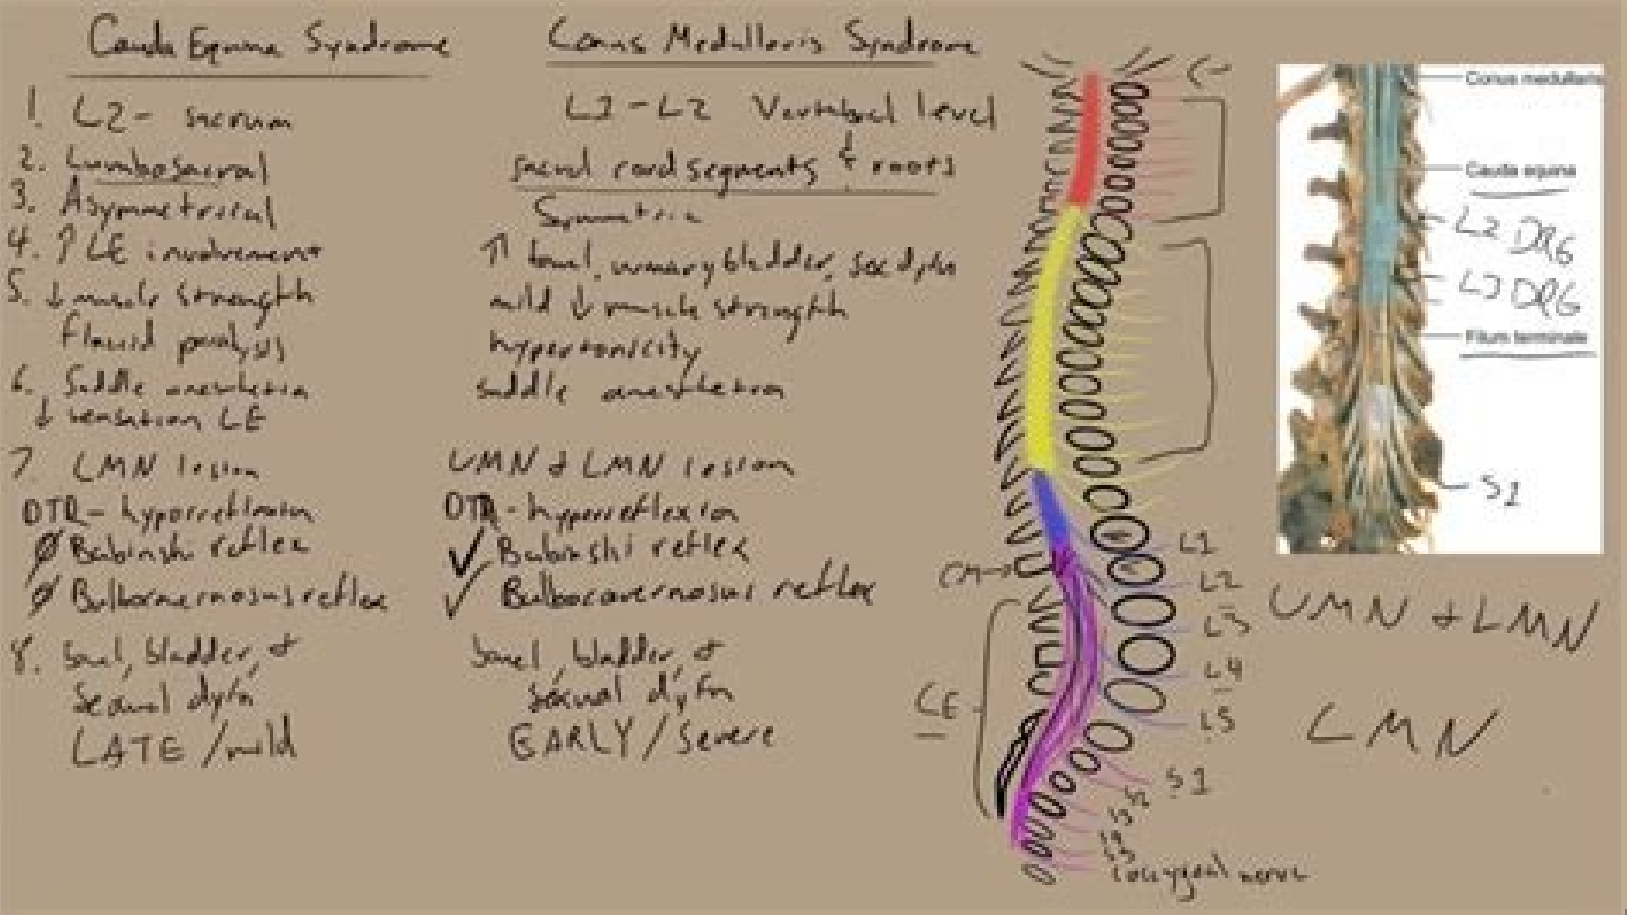 Cauda Equina Syndrome
1. L2- sacrum
2. Lumbosacral
3. Asymmetrical
4. ↑ LE involvement
5. ↓ muscle strength
flaccid paralysis
6. Saddle anesthesia
↓ sensation LE
7. LMN lesion
DTR - hyporeflexion
Ø Babinski reflex
Ø Bulbocavernosus reflex
8. bowel, bladder, +
Sexual dyfn
LATE / mild
Conus Medullaris Syndrome
L1-L2 Vertebral level
sacral cord segments & roots
Symmetric
↑ bowel, urinary bladder, sex dyfn
mild ↓ muscle strength
hypertonicity
saddle anesthesia
UMN + LMN lesion
DTR - hyperreflexion
✓ Babinski reflex
✓ Bulbocavernosus reflex
bowel, bladder, +
sexual dyfn
EARLY / Severe
CM
CE
L1
L2
L3
L4
L5
S1
S2
S3
S4
S5
coccygeal nerve
Conus medullaris
Cauda equina
L2 DRG
L3 DRG
Filum terminale
S1
UMN + LMN
LMN